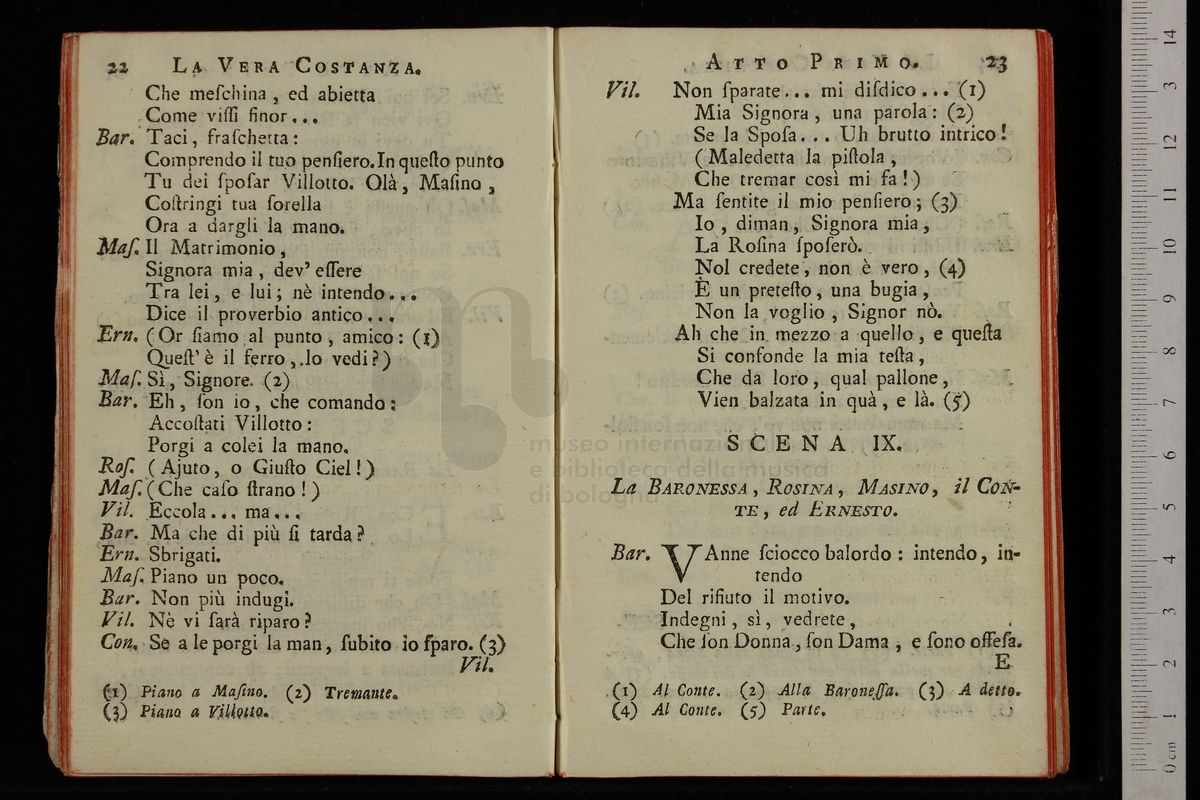 22 LA VERA COSTANZA.
Che meſchina, ed abietta
Come viſſi finor...
Bar. Taci, fraſchetta:
Comprendo il tuo penſiero. In queſto punto
Tu dei ſpoſar Villotto. Olà, Maſino,
Coſtringi tua ſorella
Ora a dargli la mano.
Maſ. Il Matrimonio,
Signora mia, dev' eſſere
Tra lei, e lui; nè intendo...
Dice il proverbio antico...
Ern. (Or ſiamo al punto, amico: (1)
Queſt' è il ferro, lo vedi?)
Maſ. Sì, Signore. (2)
Bar. Eh, ſon io, che comando:
Accoſtati Villotto:
Porgi a colei la mano.
Roſ. (Ajuto, o Giuſto Ciel!)
Maſ. (Che caſo ſtrano!)
Vil. Eccola... ma...
Bar. Ma che di più ſi tarda?
Ern. Sbrigati.
Maſ. Piano un poco.
Bar. Non più indugi.
Vil. Nè vi ſarà riparo?
Con. Se a le porgi la man, ſubito io ſparo. (3)
Vil.
(1) Piano a Maſino. (2) Tremante.
(3) Piano a Villotto.
ATTO PRIMO. 23
Vil. Non ſparate... mi diſdico... (1)
Mia Signora, una parola: (2)
Se la Spoſa... Uh brutto intrico!
(Maledetta la piſtola,
Che tremar così mi fa!)
Ma ſentite il mio penſiero; (3)
Io, diman, Signora mia,
La Roſina ſpoſerò.
Nol credete, non è vero, (4)
È un preteſto, una bugia,
Non la voglio, Signor nò.
Ah che in mezzo a quello, e queſta
Si confonde la mia teſta,
Che da loro, qual pallone,
Vien balzata in quà, e là. (5)
SCENA IX.
La BARONESSA, ROSINA, MASINO, il CON-
TE, ed ERNESTO.
Bar. VAnne ſciocco balordo: intendo, in-
tendo
Del rifiuto il motivo.
Indegni, sì, vedrete,
Che ſon Donna, ſon Dama, e ſono offeſa.
E
(1) Al Conte. (2) Alla Baroneſſa. (3) A detta.
(4) Al Conte. (5) Parte.
museo internazionale
e biblioteca della musica
di bologna
0 cm 1 2 3 4 5 6 7 8 9 10 11 12 13 14